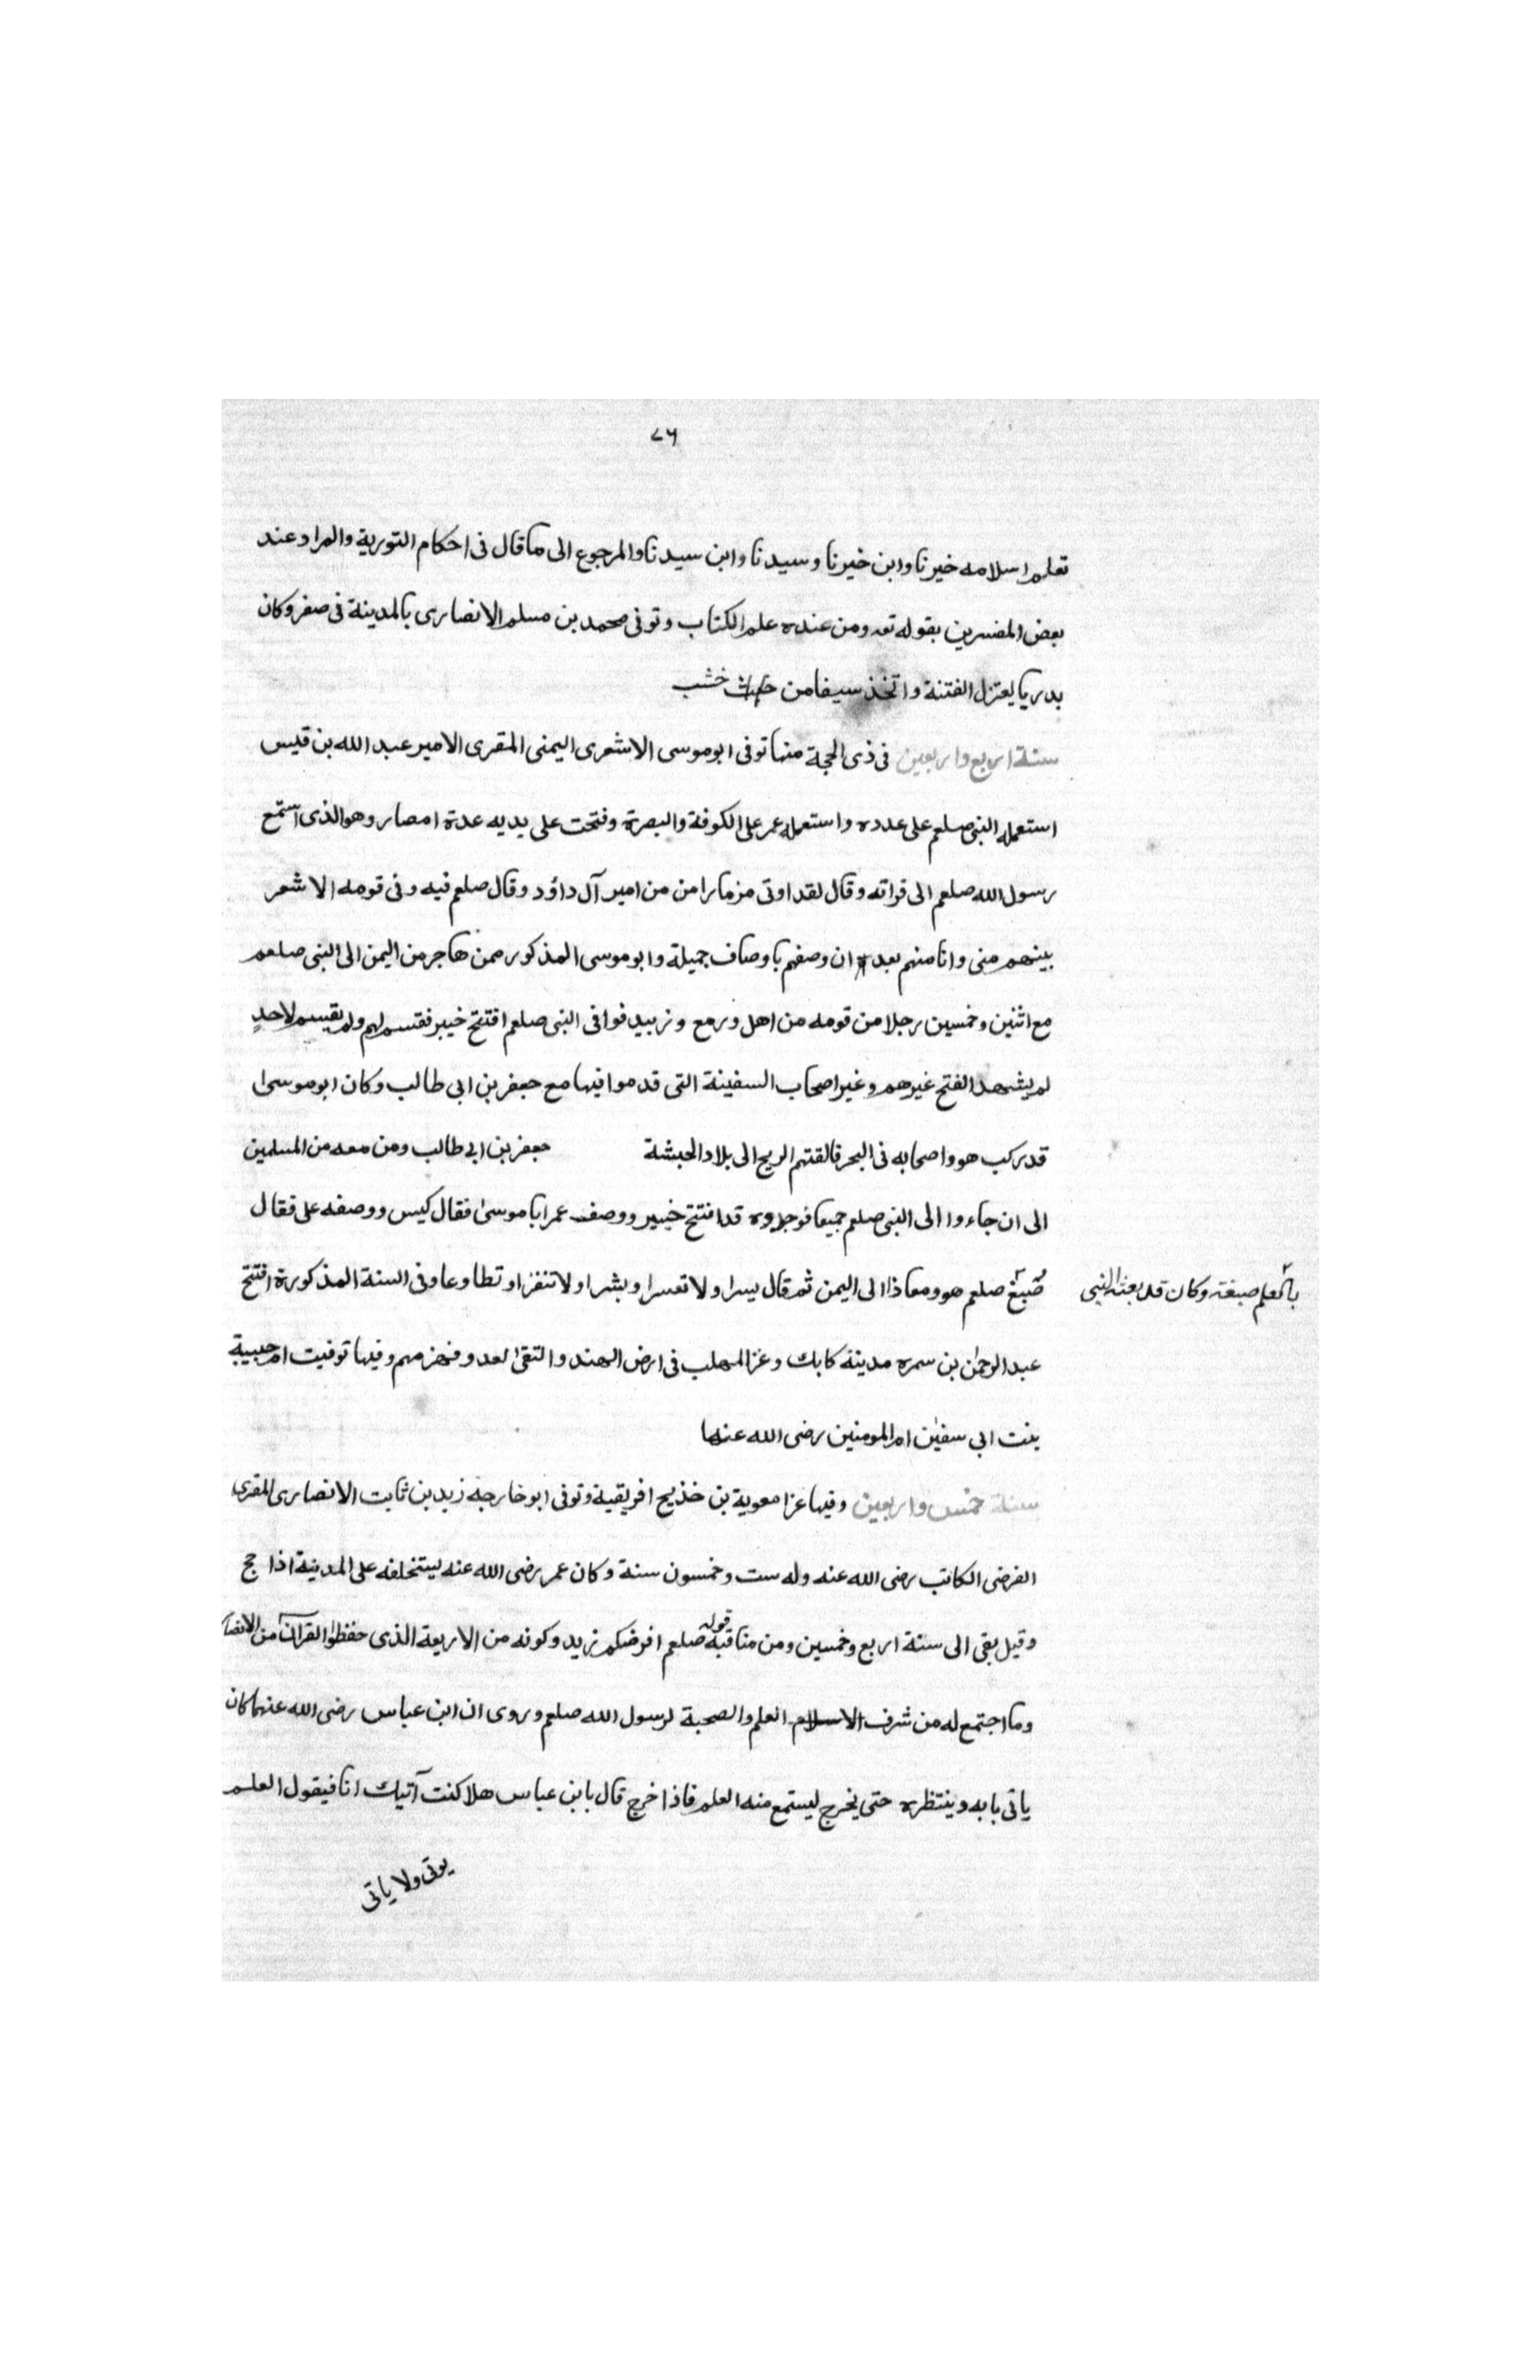 ٧٦
تعلم اسلامه خيرنا وابن خيرنا وسيدنا وابن سيدنا والمرجوع الى ما قال فى احكام التورية والمراد عند
بعض المفسرين بقوله تعه ومن عنده علم الكتاب وتوفى محمد بن مسلم الانصارى بالمدينة فى صفر وكان
بدريا يعتزل الفتنة واتخذ سيفا من خشب
سنة اربع واربعين فى ذى الحجة منها توفى ابو موسى الاشعرى اليمنى المقرى الامير عبد الله بن قيس
استعمله النبى صلعم على عدده واستعمله عمر على الكوفة والبصرة وفتحت على يديه عدة امصار وهو الذى استمع
رسول الله صلعم الى قراته وقال لقد اوتى مزمارا من من امير آل داؤد وقال صلعم فيه وفى قومه الاشعر
بينهم منى وانا منهم بعد ان وصفهم باوصاف جميلة وابو موسى المذكور ممن هاجر من اليمن الى النبى صلعم
مع اثنين وخمسين رجلا من قومه من اهل ورمع وزبيد فوافى النبى صلعم افتتح خيبر فقسم لهم ولم يقسم لاحد
لم يشهد الفتح غيرهم وغير اصحاب السفينة التى قدموا فيها مع جعفر بن ابى طالب وكان ابو موسى
قد ركب هو واصحابه فى البحر فالقتهم الريح الى بلاد الحبشة جعفر بن ابى طالب ومن معه من المسلمين
الى ان جاءوا الى النبى صلعم جميعا فوجدوه قد افتتح خيبر ووصف عمر ابا موسى فقال كيس ووصفه على فقال
صُبغ صلعم هو ومعاذا الى اليمن ثم قال يسرا ولا تعسرا وبشرا ولا تنفرا وتطاوعا وفى السنة المذكورة افتتح
بالعلم صبغة وكان قد بعثه النبى
عبد الرحمن بن سمره مدينة كابك وغزا المهلب فى ارض الهند والتقى العدو فهزمهم وفيها توفيت ام حبيبة
بنت ابى سفين ام المومنين رضى الله عنها
سنة خمس واربعين وفيها غزا معوية بن خذيج افريقية وتوفى ابو خارجه زيد بن ثابت الانصارى المقرى
الفرضى الكاتب رضى الله عنه وله ست وخمسون سنة وكان عمر رضى الله عنه يستخلفه على المدينة اذا حج
وقيل بقى الى سنة اربع وخمسين ومن مناقبه قوله صلعم افرضكم زيد وكونه من الاربعة الذى حفظوا القرآن من الانصا
وما اجتمع له من شرف الاسلام العلم والصحبة لرسول الله صلعم وروى ان ابن عباس رضى الله عنهما كان
ياتى بابه وينتظره حتى يخرج ليستمع منه العلم فاذا خرج قال يا بن عباس هلا كنت آتيك انا فيقول العلم
يوتى ولا ياتى